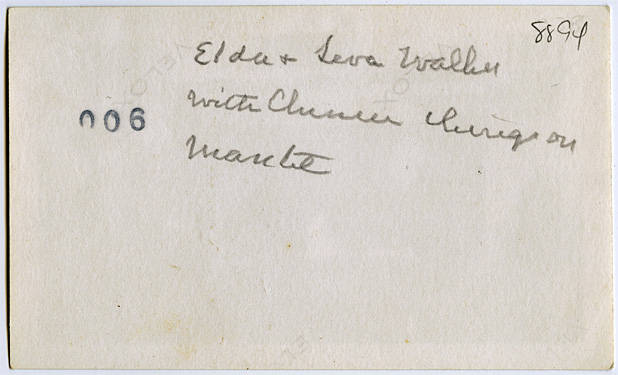 8894
Elda + Leva Walker
with Chinese things on
006
Mantel
VELOX